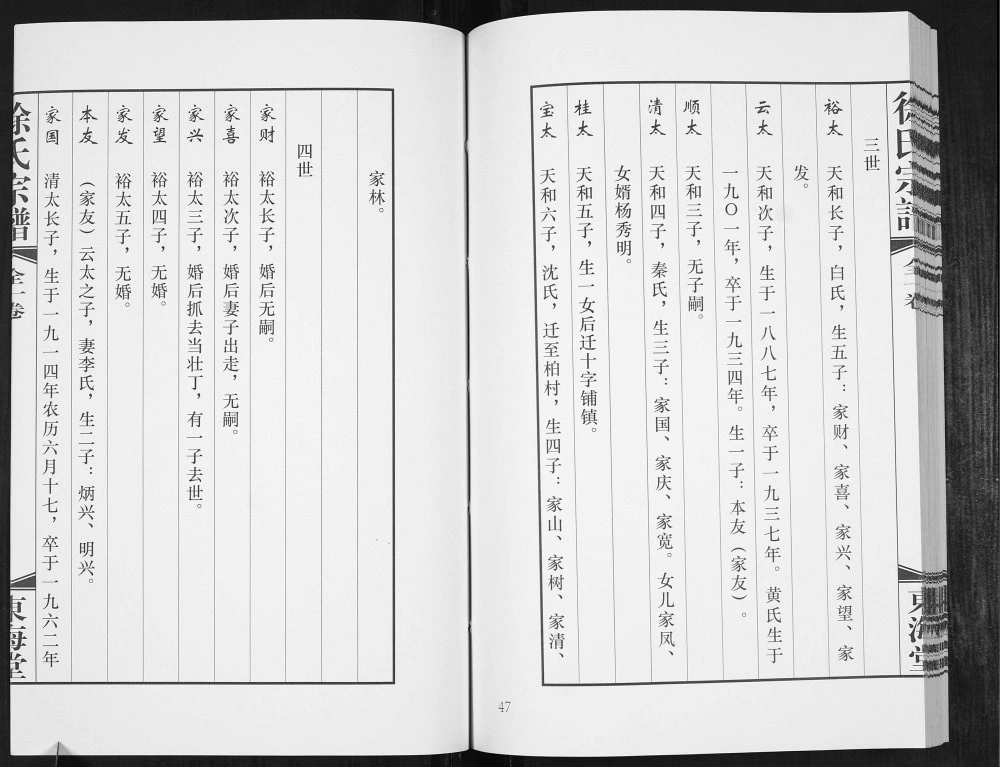 徐氏宗谱
全一卷
東海堂
三世
裕太 天和长子，白氏，生五子：家财、家喜、家兴、家望、家
发。
云太 天和次子，生于一八八七年，卒于一九三七年。黄氏生于
一九〇一年，卒于一九三四年。生一子：本友（家友）。
顺太 天和三子，无子嗣。
清太 天和四子，秦氏，生三子：家国、家庆、家宽。女儿家凤、
女婿杨秀明。
桂太 天和五子，生一女后迁十字铺镇。
宝太 天和六子，沈氏，迁至柏村，生四子：家山、家树、家清、
47
家林。
四世
家财 裕太长子，婚后无嗣。
家喜 裕太次子，婚后妻子出走，无嗣。
家兴 裕太三子，婚后抓去当壮丁，有一子去世。
家望 裕太四子，无婚。
家发 裕太五子，无婚。
本友 （家友）云太之子，妻李氏，生二子：炳兴、明兴。
家国 清太长子，生于一九一四年农历六月十七，卒于一九六二年
徐氏宗譜
全一卷
東海堂